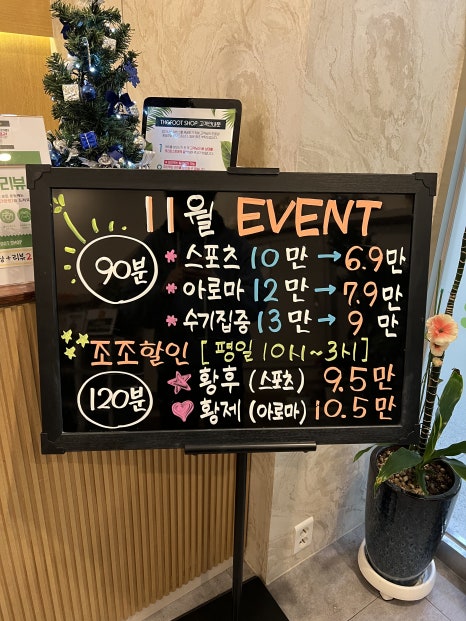 THEFOOT SHOP 고객안내문
리뷰
11월 EVENT
90분
* 스포츠 10만 → 6.9만
* 아로마 12만 → 7.9만
* 수기집중 13만 → 9만
조조할인 [평일 10시~3시]
120분
황후 (스포츠) 9.5만
황제 (아로마) 10.5만